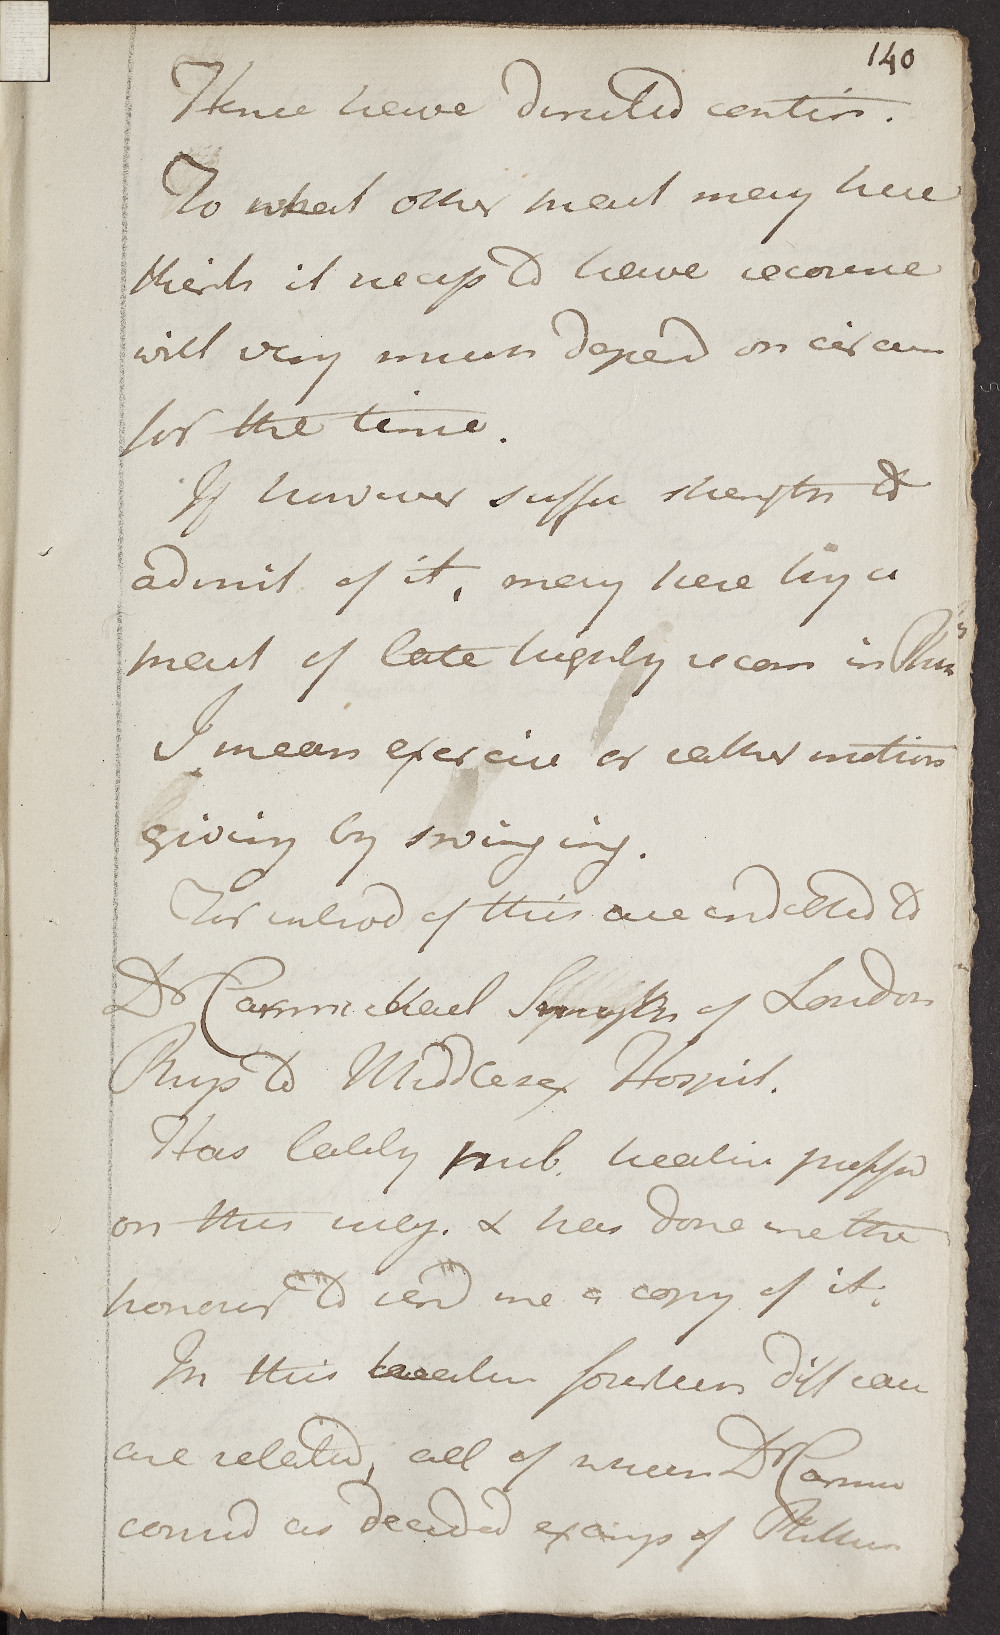 140
Hence have directed contin.
To what other meas may here
think it necess to have recourse
will very much depend on circum
for the time.
If however suffic strength to
admit of it, may here try a
meas of late highly recom in Phthis
I mean exercise or rather motion
giving by swinging.
For introd of this are indebted to
Dr Carmichael Smyth of London
Phys to Middlesex Hospit.
Has lately pub. treatise
on this subj. & has done me the
honour to send me a copy of it.
In this treatise fourteen diff cases
are related, all of which Dr Carmic
consid as decided examps of Phthisis